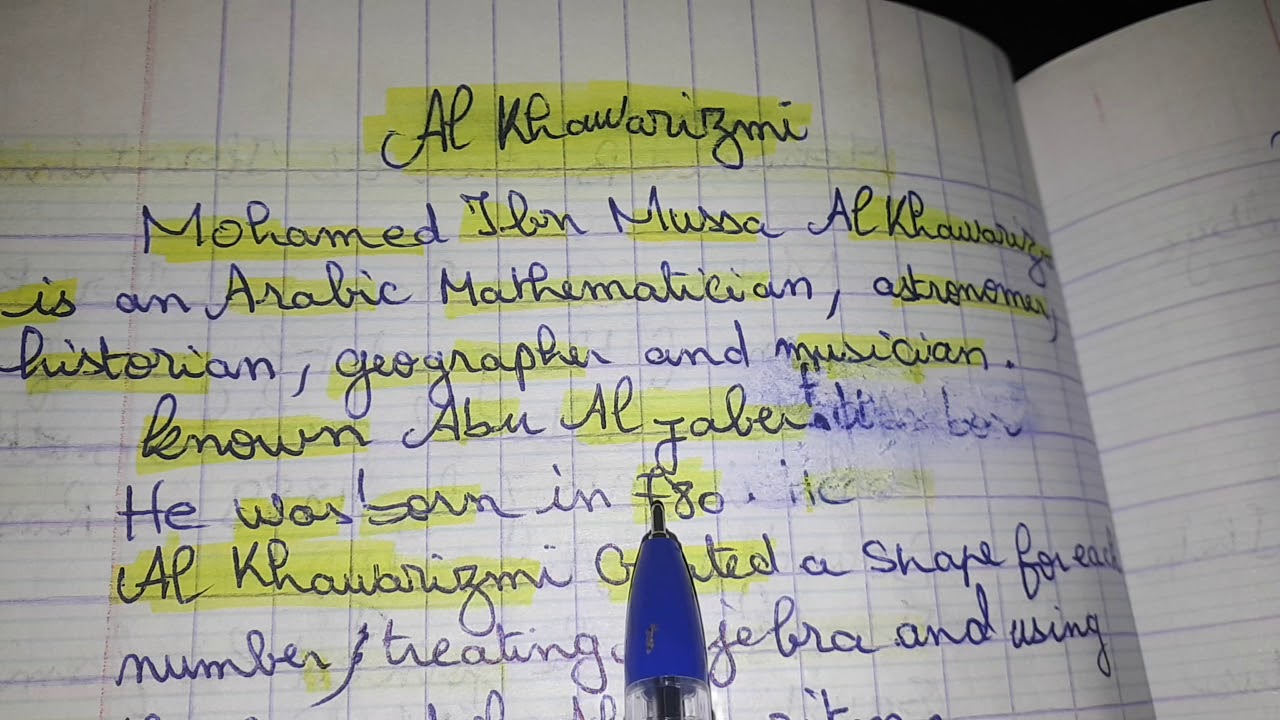 Al Khawarizmi
Mohamed Ibn Mussa Al Khawariz
is an Arabic Mathematician, astronomer,
historian, geographer and musician.
known Abu Al jaber
He was born in 780.
Al Khawarizmi a shape for each
number, treating and using